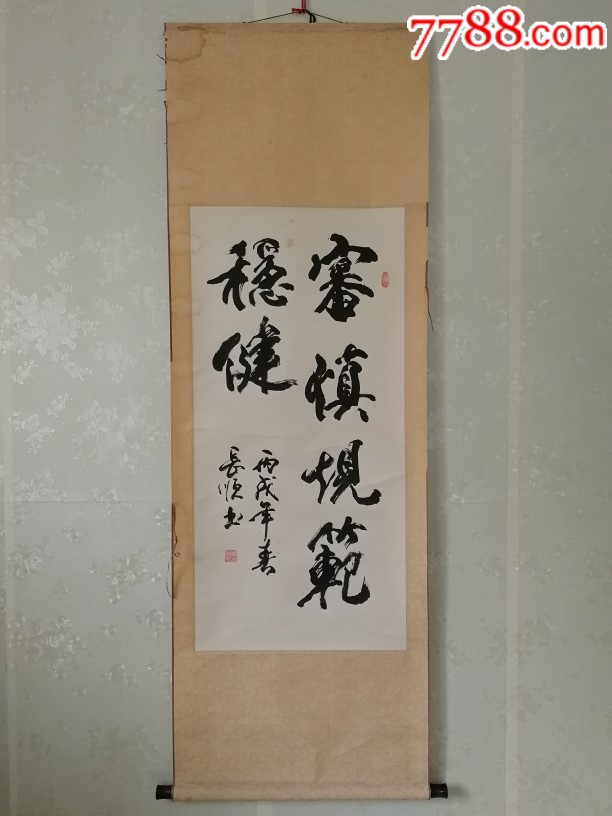 7788.com
審慎規範
穩健
丙戌年春
長順书